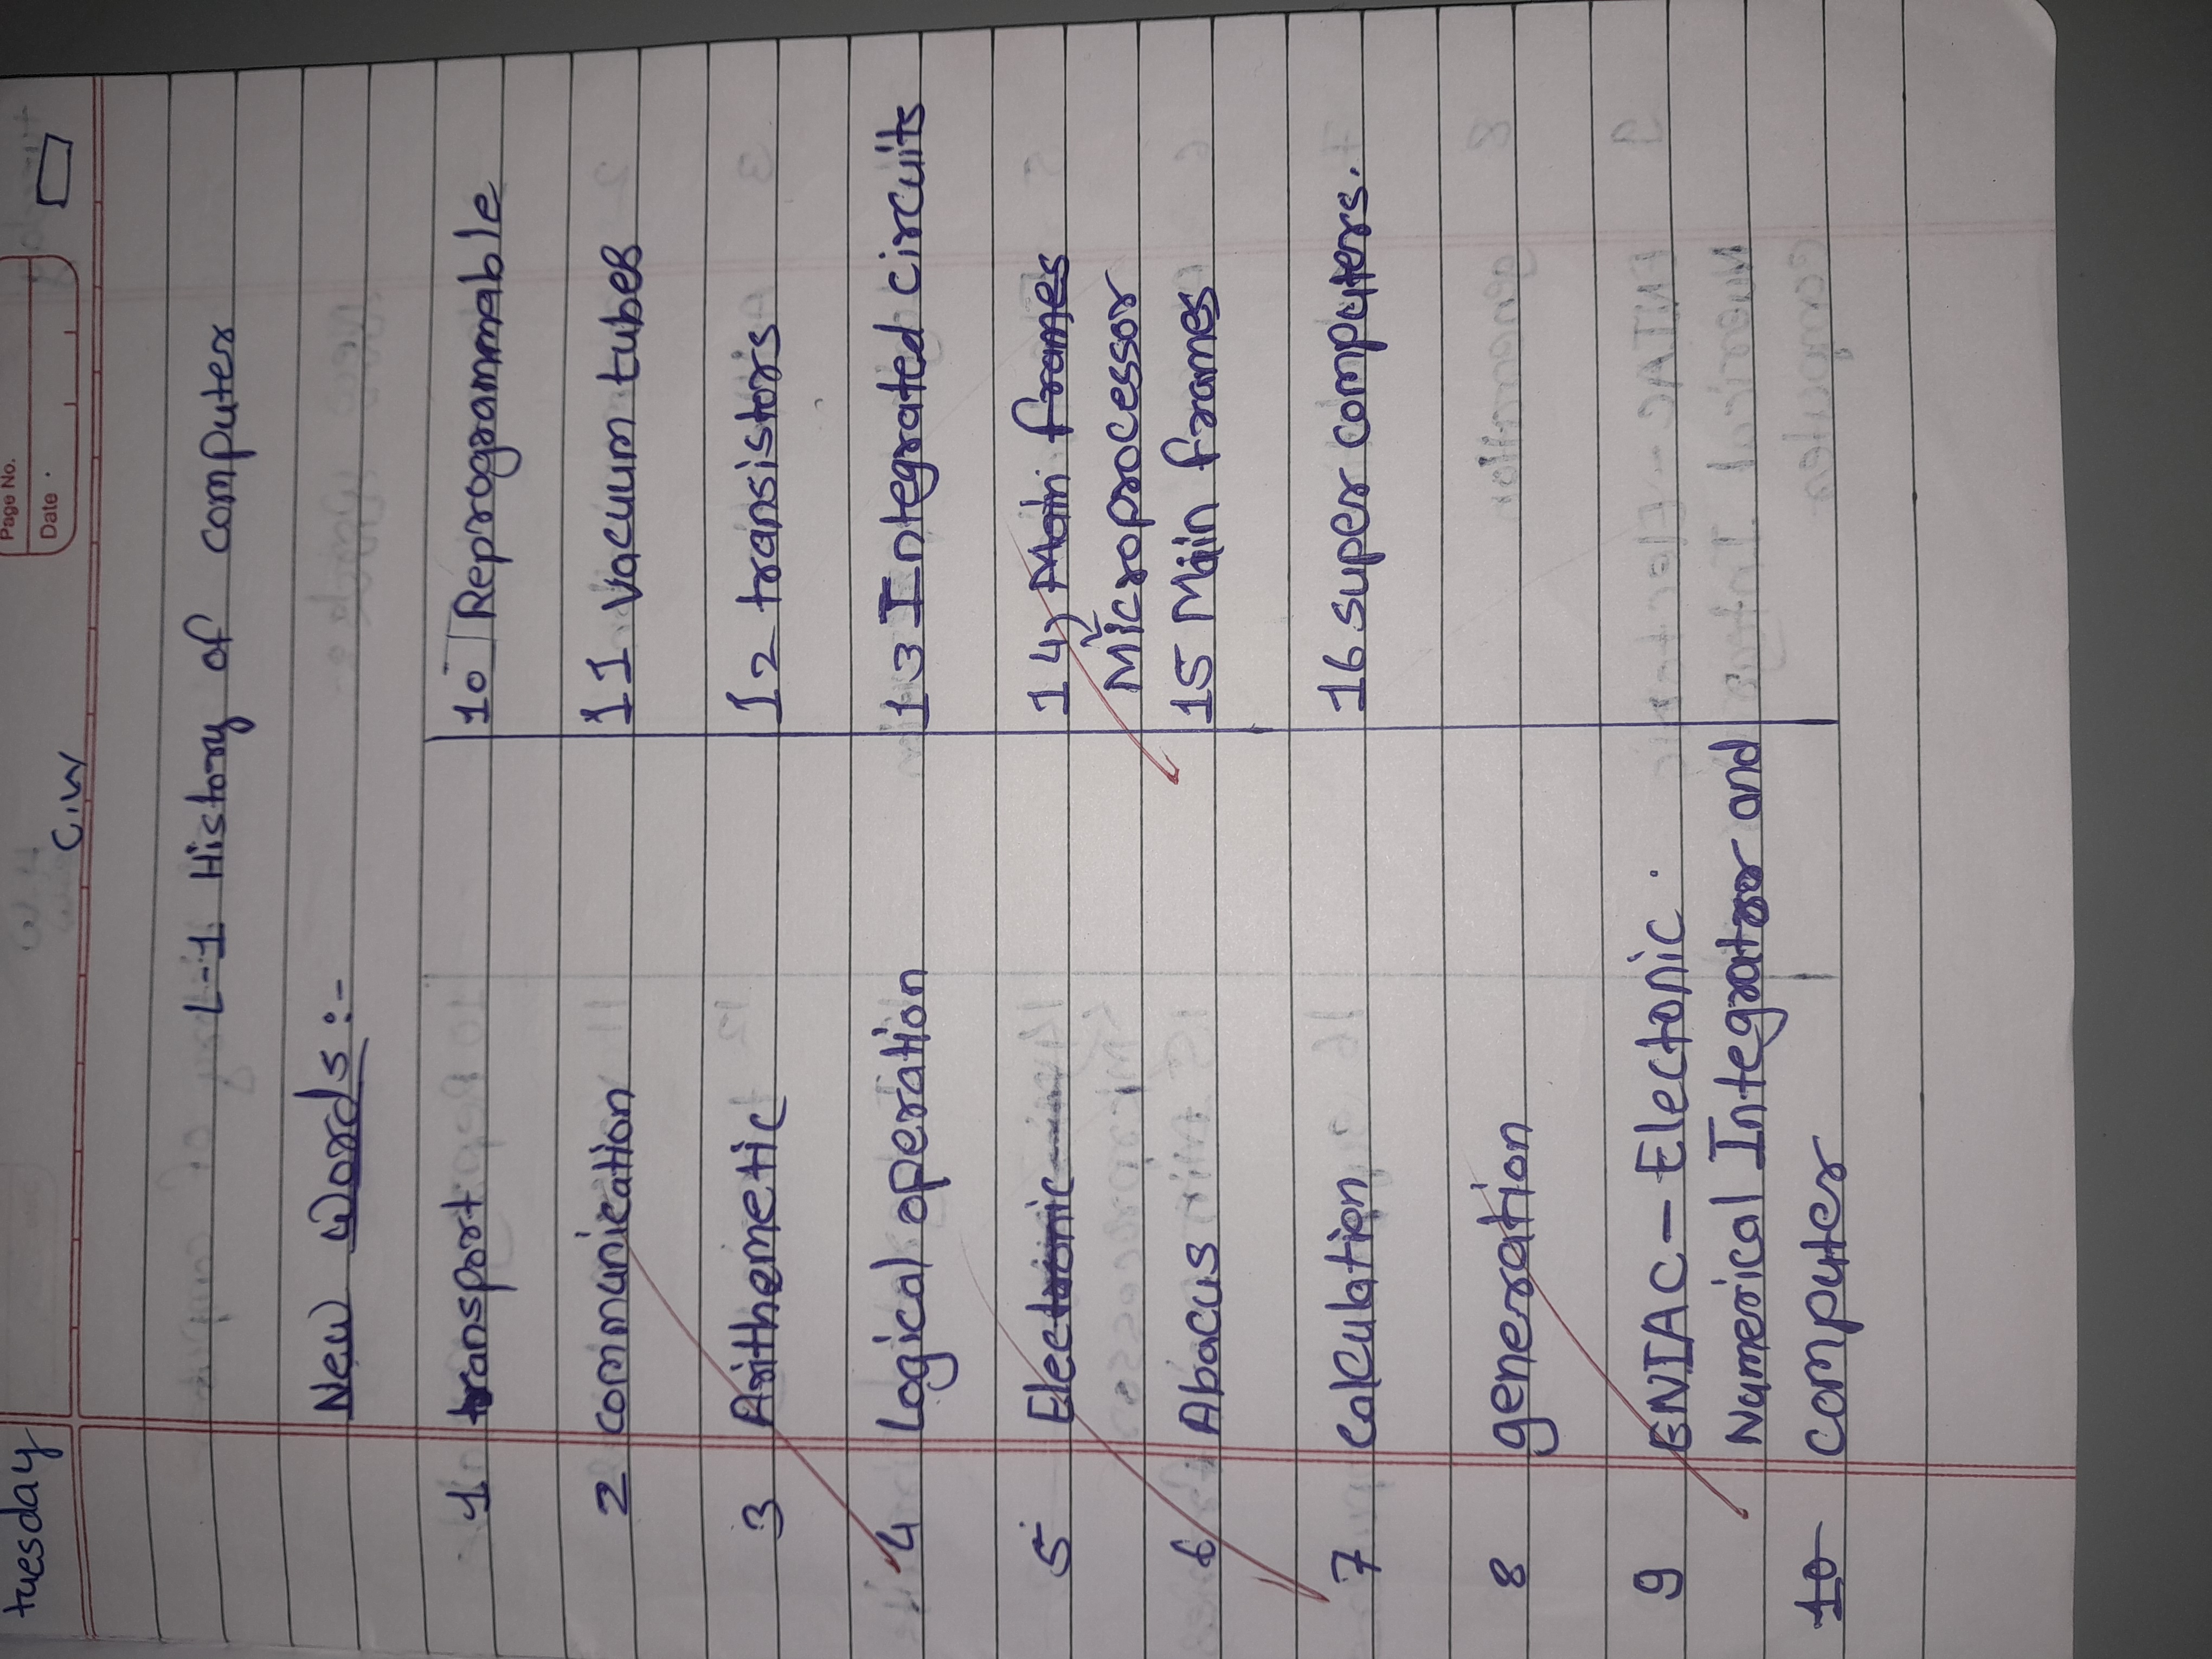 Tuesday
C.W
Page No.
Date
L-1 History of computer
New Words:-
1 transport
2 communication
3 Arithemetic
4 Logical operation
5 Electronic
6 Abacus
7 calculation
8 generation
9 ENIAC - Electonic.
Numerical Integrator and
10 computer
10 Reprogrammable
11 Vacuum tubes
12 transistors
13 Integrated circuits
14) Main frames
Microprocessor
15 Main frames
16 super computers.